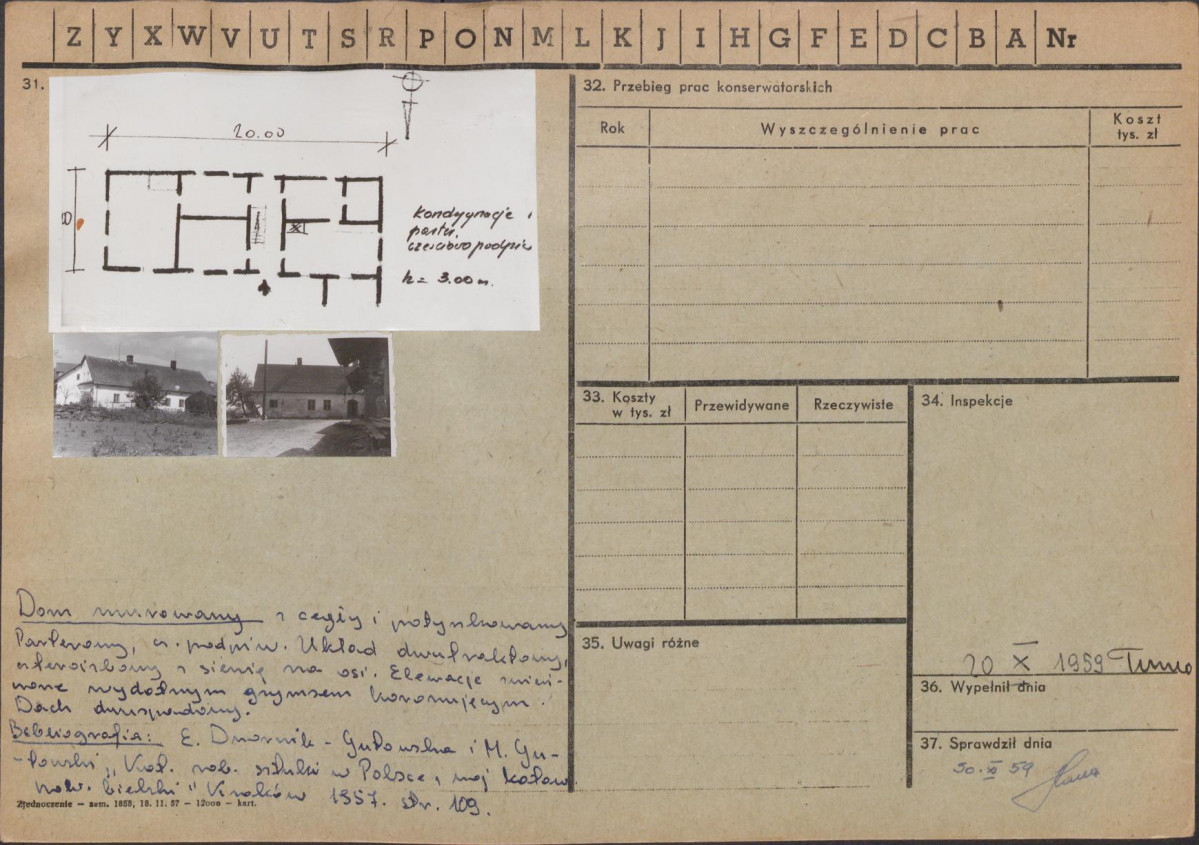 Z Y X W V U T S R P O N M L K J I H G F E D C B A Nr
31.
20.00
8
kondygnacje :
parter,
częściowo podpiw
h = 3.00 m.
Dom murowany z cegły i potynkowany
Parterowy, cz. podpiw. Układ dwutraktowy,
z sienią na osi. Elewacje zwień-
czone wydatnym gzymsem koronującym.
Dach dwuspadowy.
Bibliografia: E. Dwornik-Gutowska i M. Gu-
-towski, "Kat. zab. sztuki w Polsce, woj. katow.
pow. bielski" Kraków 1957. str. 109.
Zjednoczenie — zam. 1858, 18. 11. 57 — 12000 — kart.
32. Przebieg prac konserwatorskich
Rok Wyszczególnienie prac Koszt
tys. zł
33. Koszty
w tys. zł Przewidywane Rzeczywiste
34. Inspekcje
35. Uwagi różne
20 X 1959
36. Wypełnił dnia
37. Sprawdził dnia
30. XI 59